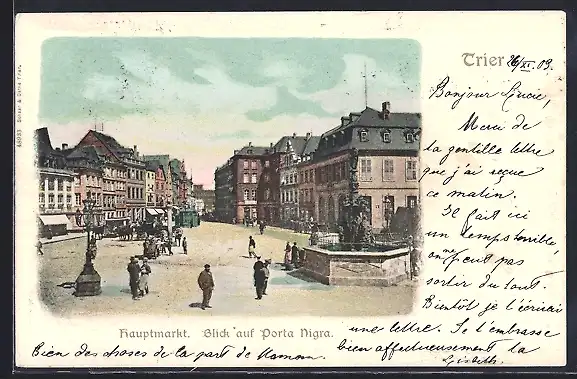 Trier 26/XI. 03.
Bonjour Lucie,
Merci de
la gentille lettre
que j'ai reçue
ce matin.
Il fait ici
un temps terrible,
on ne peut pas
sortir du tout.
Bientôt je t'écrirai
une lettre. Je t'embrasse
bien affectueusement ta
Lisbeth.
Hauptmarkt. Blick auf Porta Nigra.
Bien des choses de la part de Maman